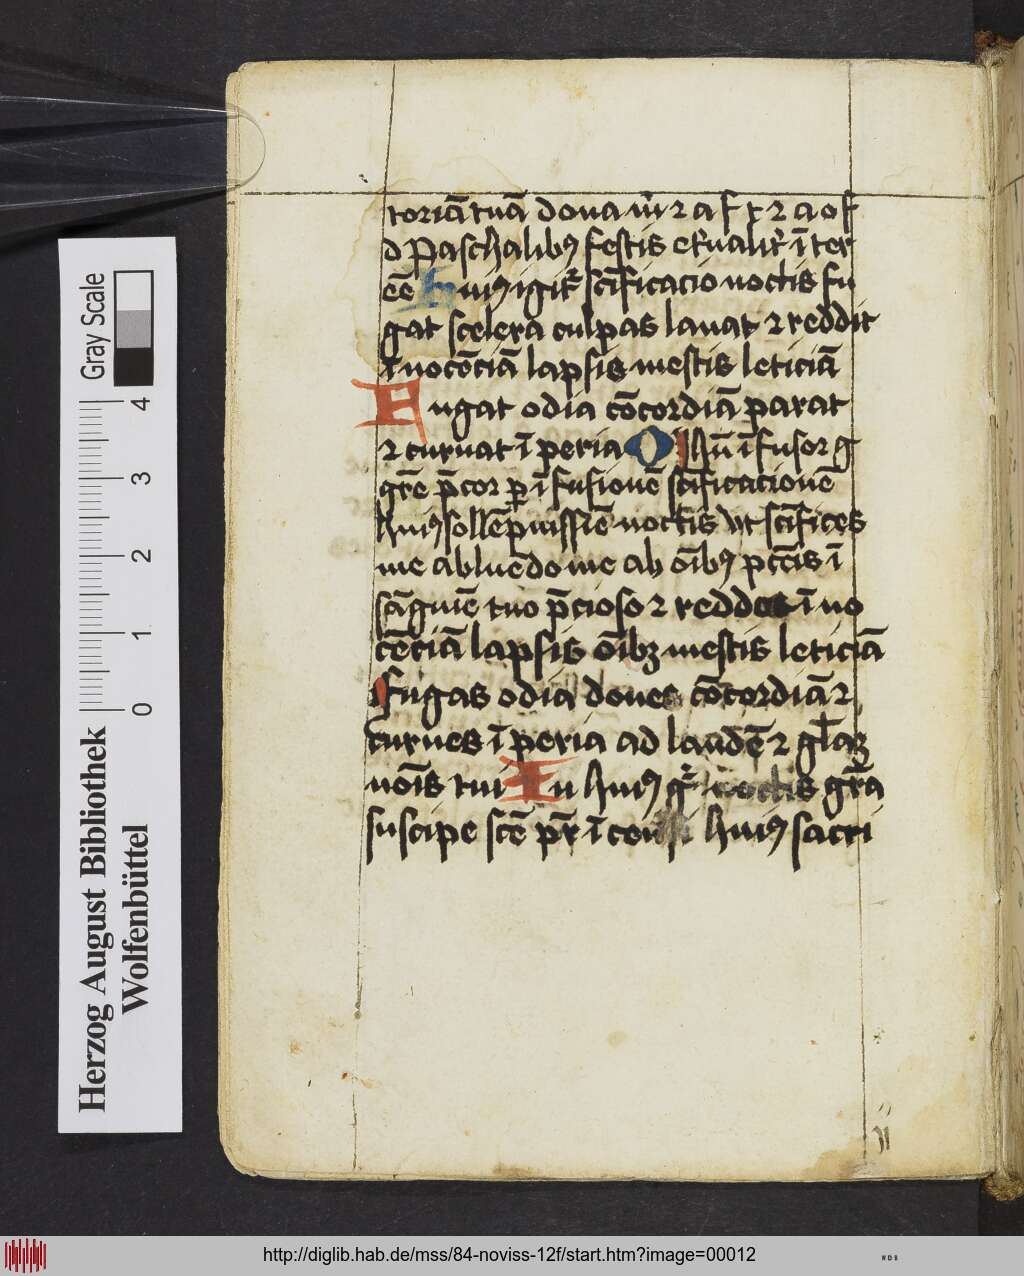 toriā tuā dona ūi ⁊ a f x ⁊ a o f
d Paschalibꝯ festis et̓nalit̓ īter
eē huiꝯ igit̓ sc̄ificacio noctis fu
gat scelera culpas lauat ⁊ reddit
īnocēciā lapsis mestis leticiā
Fugat odia cōcordiā parat
⁊ curuat īperia O ihū īfusor g
gr̄e p̄cor ꝑ īfusionē sc̄ificacionē
huiꝯ sollēpnissīe noctis vt sc̄ifices
me abluendo me ab oībꝯ pctīs ī
sāguīe tuo p̄cioso ⁊ reddes īno
cēciā lapsis oībꝫ mestis leticiā
fugas odia dones cōcordiā ⁊
curues īperia ad laudē ⁊ gl̄aꝫ
noīs tui In huiꝯ gͥ noctis gr̄a
suscipe scē pr̄ īcensi huiꝯ sacri
Herzog August Bibliothek
Wolfenbüttel
Gray Scale
0 1 2 3 4
http://diglib.hab.de/mss/84-noviss-12f/start.htm?image=00012